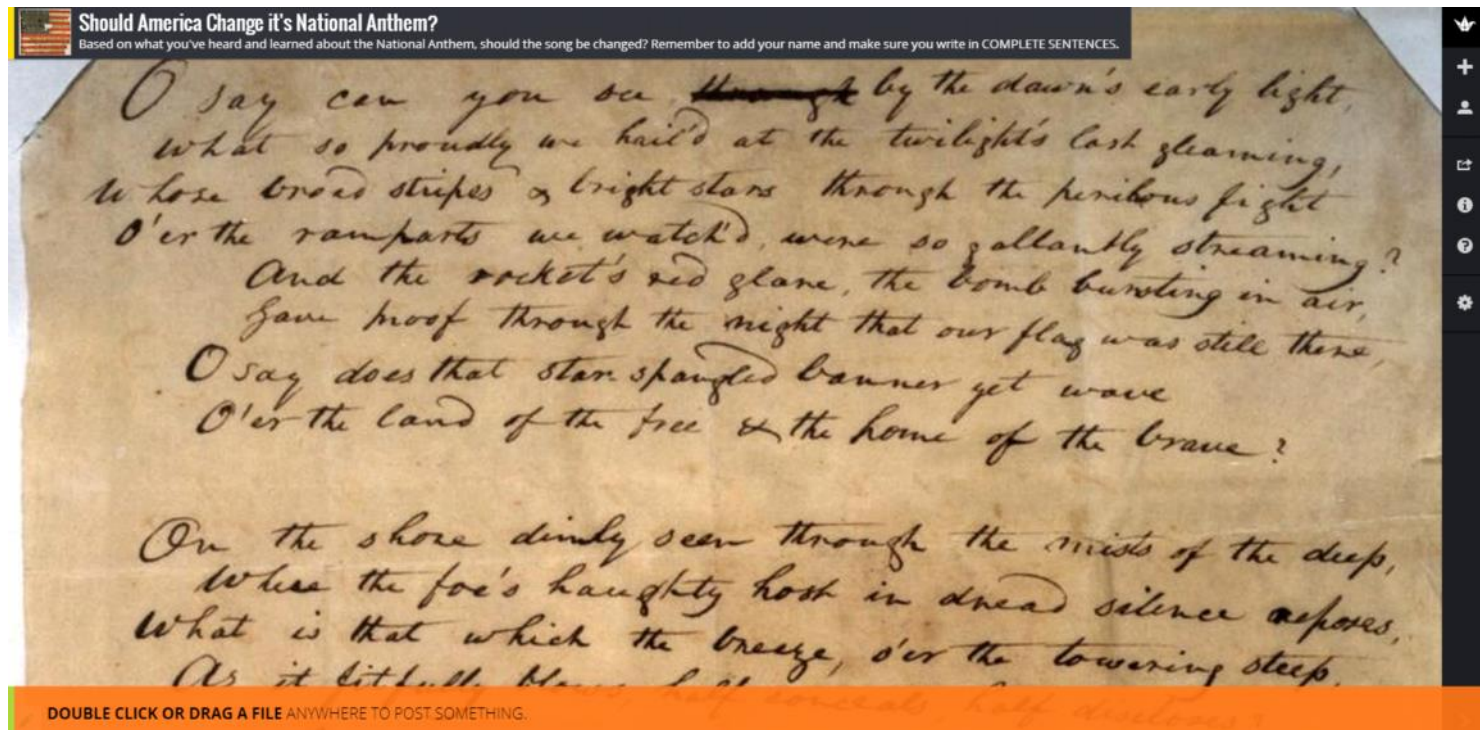 Should America Change it's National Anthem?
Based on what you've heard and learned about the National Anthem, should the song be changed? Remember to add your name and make sure you write in COMPLETE SENTENCES.
O say can you see through by the dawn's early light,
What so proudly we hail'd at the twilight's last gleaming,
Whose broad stripes & bright stars through the perilous fight
O'er the ramparts we watch'd, were so gallantly streaming?
And the rocket's red glare, the bomb bursting in air,
Gave proof through the night that our flag was still there,
O say does that star spangled banner yet wave
O'er the land of the free & the home of the brave?
On the shore dimly seen through the mists of the deep,
Where the foe's haughty host in dread silence reposes,
What is that which the breeze, o'er the towering steep,
As it fitfully blows, half conceals, half discloses?
DOUBLE CLICK OR DRAG A FILE ANYWHERE TO POST SOMETHING.